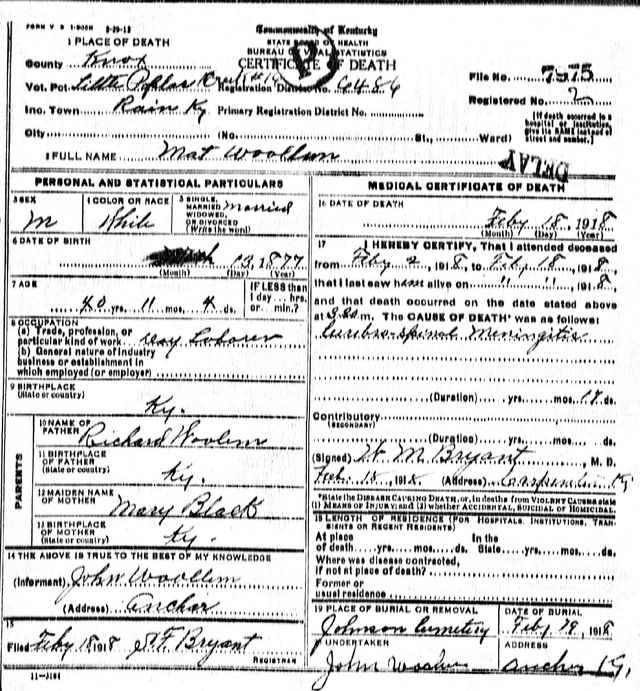 FORM V S 1-500M 8-19-13
Commonwealth of Kentucky
STATE BOARD OF HEALTH
BUREAU OF VITAL STATISTICS
CERTIFICATE OF DEATH
1 PLACE OF DEATH
County Knox
Vot. Pct. Little Poplar Creek #19 Registration District No. 6486
Inc. Town Rain Ky Primary Registration District No.
City (No. St., Ward)
File No. 7975
Registered No. 2
[If death occurred in a hospital or institution, give its NAME instead of street and number.]
2 FULL NAME Mat Woollum
DELAY
PERSONAL AND STATISTICAL PARTICULARS
3 SEX M
4 COLOR OR RACE White
5 SINGLE, MARRIED, WIDOWED, OR DIVORCED (Write the word) Married
6 DATE OF BIRTH
13, 1877
(Month) (Day) (Year)
7 AGE
40 yrs. 11 mos. 4 ds.
IF LESS than 1 day... hrs. or min.?
8 OCCUPATION
(a) Trade, profession, or
particular kind of work Day Laborer
(b) General nature of industry
business or establishment in
which employed (or employer)
9 BIRTHPLACE
(State or country) Ky.
PARENTS
10 NAME OF
FATHER Richard Woollum
11 BIRTHPLACE
OF FATHER
(State or country) Ky.
12 MAIDEN NAME
OF MOTHER Mary Black
13 BIRTHPLACE
OF MOTHER
(State or country) Ky.
14 THE ABOVE IS TRUE TO THE BEST OF MY KNOWLEDGE
(Informant) John Woollum
(Address) Anchor
15
Filed Feby 18 1918 Bryant
REGISTRAR
11-3184
MEDICAL CERTIFICATE OF DEATH
16 DATE OF DEATH
Feby 18, 1918
(Month) (Day) (Year)
17 I HEREBY CERTIFY, That I attended deceased
from Feby 2, 1918, to Feby 18, 1918,
that I last saw him alive on " ", 1918,
and that death occurred on the date stated above
at m. The CAUSE OF DEATH* was as follows:
Cerebro-spinal Meningitis
(Duration) yrs. mos. ds.
Contributory
(SECONDARY)
(Duration) yrs. mos. ds.
(Signed) W M Bryant, M. D.
Feb. 18, 1918, (Address) Carpenter Ky
*State the DISEASE CAUSING DEATH, or, in deaths from VIOLENT CAUSES state
(1) MEANS OF INJURY; and (2) whether ACCIDENTAL, SUICIDAL OR HOMICIDAL.
18 LENGTH OF RESIDENCE (FOR HOSPITALS, INSTITUTIONS, TRANSIENTS OR RECENT RESIDENTS)
At place of death yrs. mos. ds. In the State yrs. mos. ds.
Where was disease contracted,
if not at place of death?
Former or
usual residence
19 PLACE OF BURIAL OR REMOVAL
Johnson Cemetery
DATE OF BURIAL
Feby 19, 1918
UNDERTAKER
John
ADDRESS
Anchor Ky.